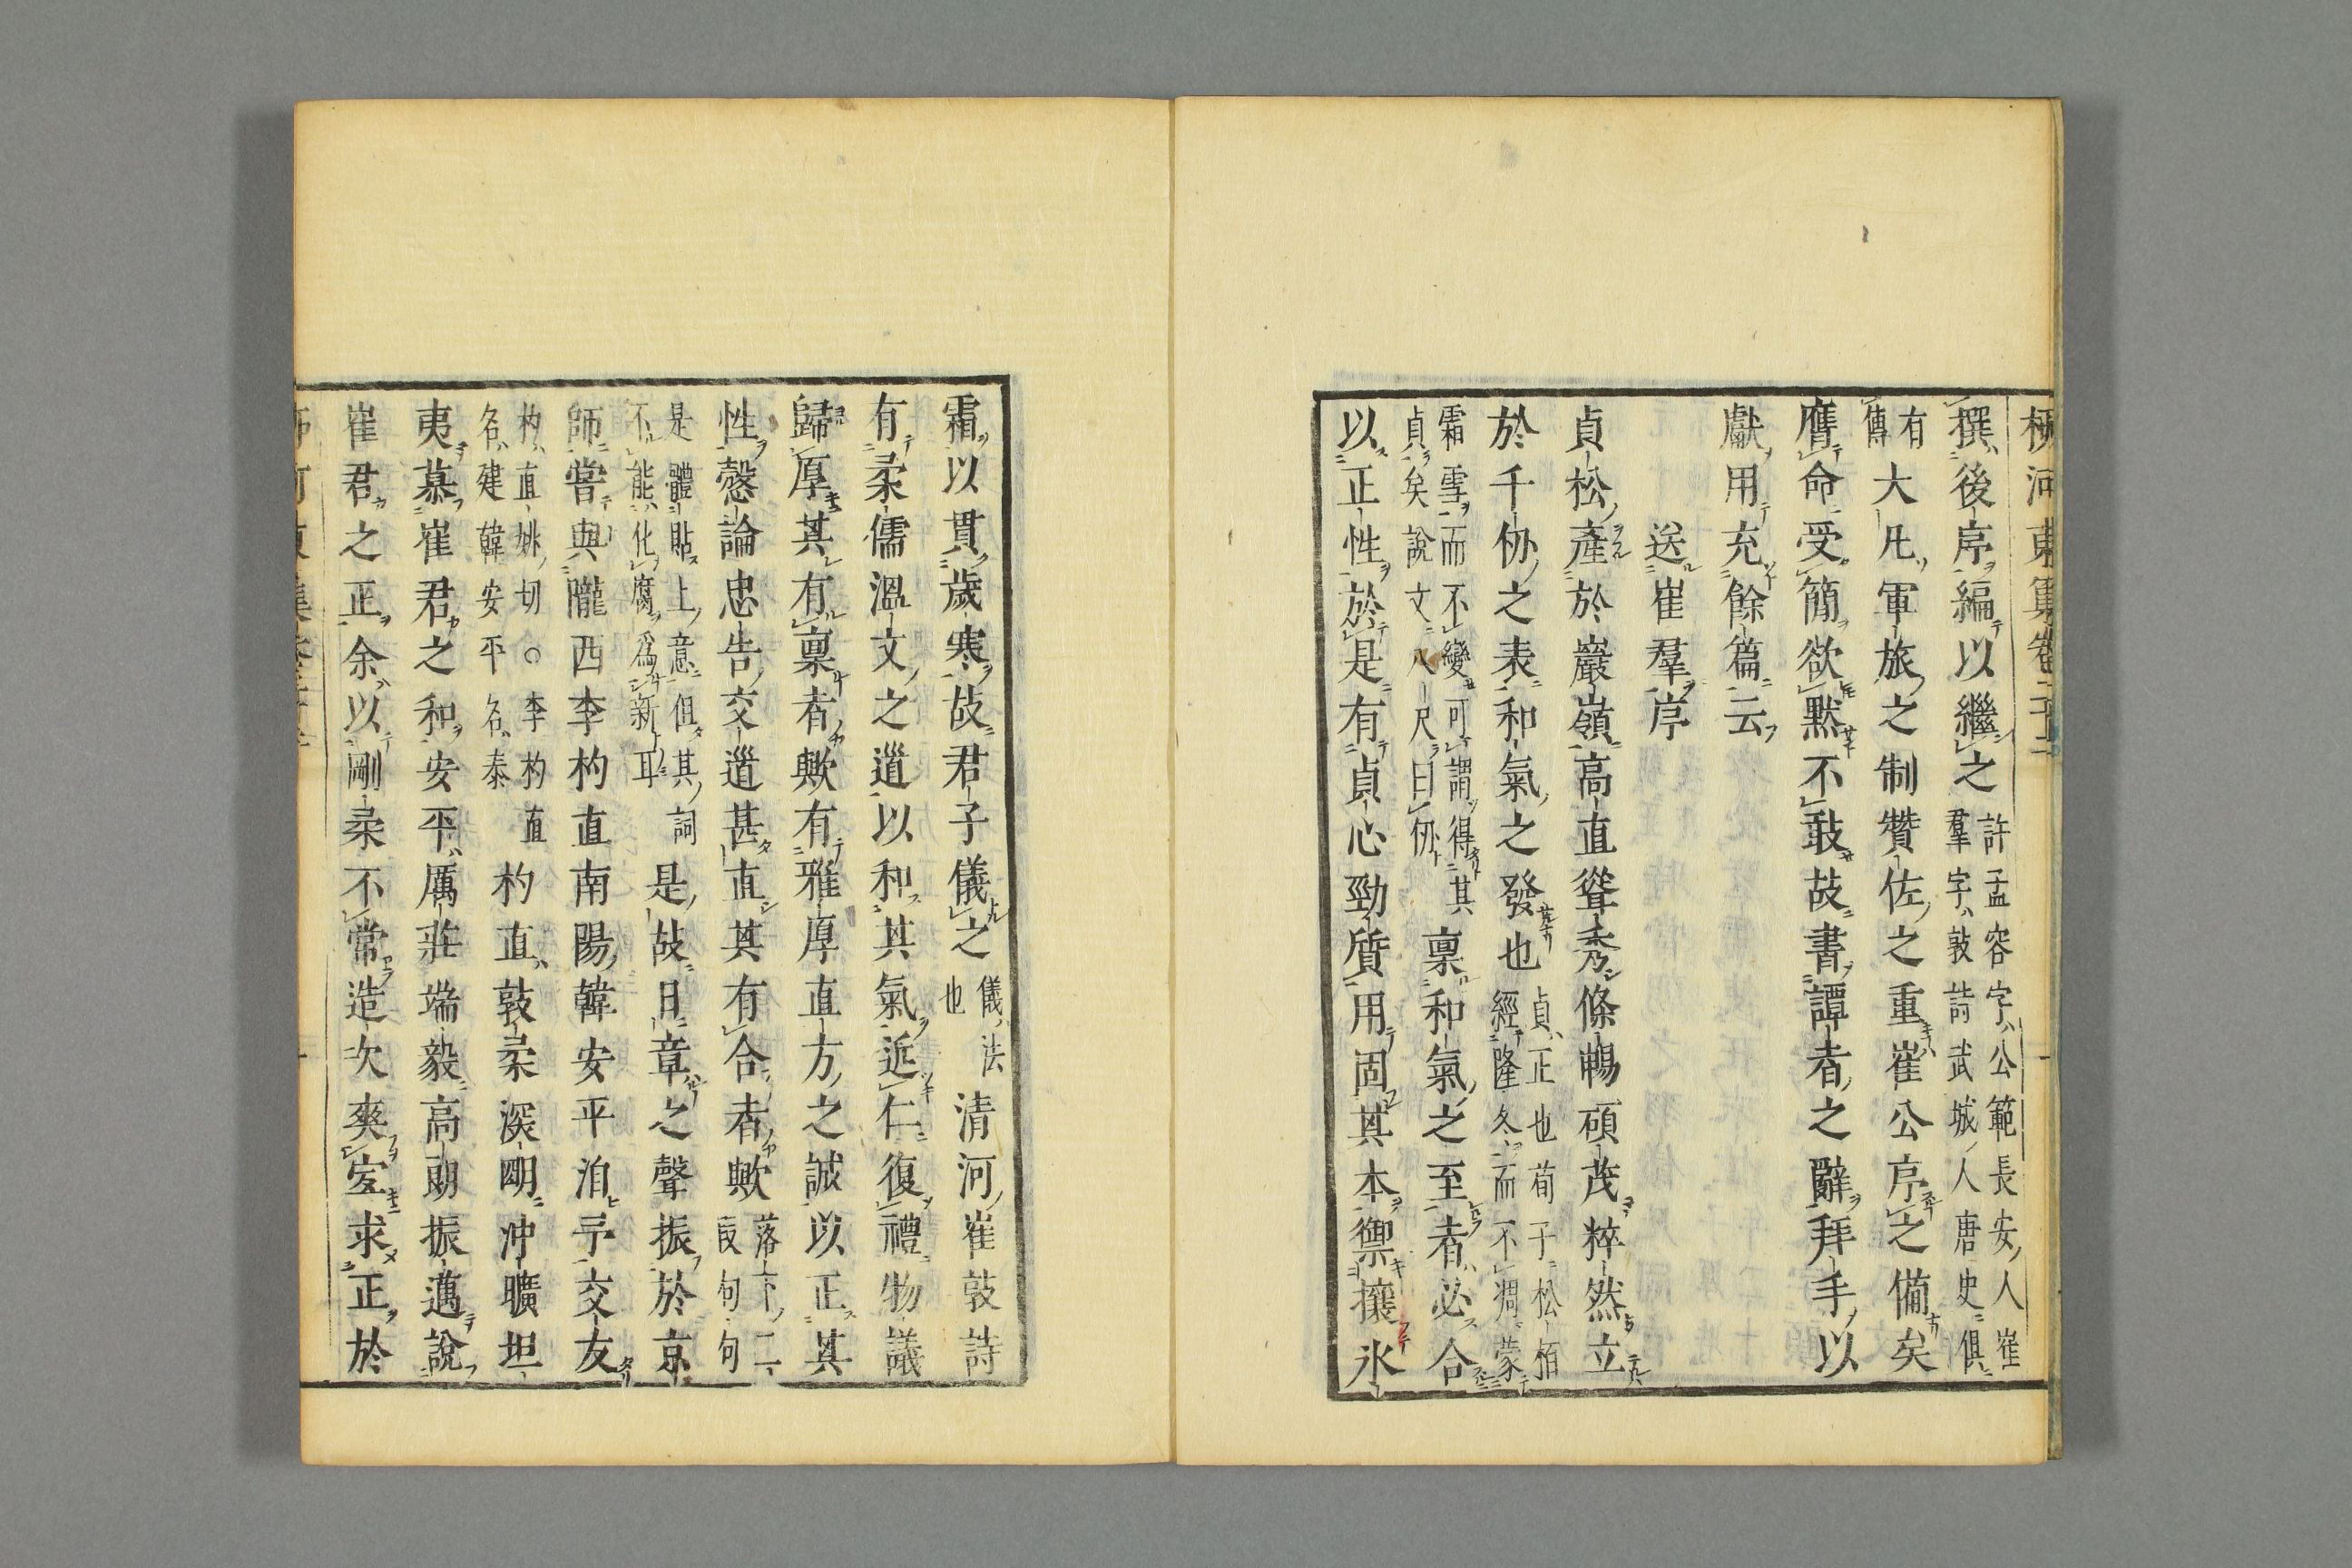 柳河東集卷二十二
撰後序編以繼之許孟容字公範長安人崔
羣字敦詩武城人唐史俱
有
傳大凡軍旅之制贊佐之重崔公序之備矣
膺命受簡欲默不敢故書譚者之辭拜手以
獻用充餘篇云
送崔羣序
貞松產於巖嶺高直聳秀條暢碩茂粹然立
於千仞之表和氣之發也貞正也荀子松栢
經隆冬而不凋蒙
霜雪而不變可謂得其
貞矣說文八尺曰仞稟和氣之至者必合
以正性於是有貞心勁質用固其本禦攘氷
霜以貫歲寒故君子儀之儀法
也清河崔敦詩
有柔儒溫文之道以和其氣近仁復禮物議
歸厚其有稟者歟有雅厚直方之誠以正其
性愨論忠告交道甚直其有合者歟落下二
段句句
是體貼上意但其詞
不能化腐爲新耳是故日章之聲振於京
師嘗與隴西李杓直南陽韓安平洎予交友
杓直姚切○李杓直
名建韓安平名泰杓直敦柔深明冲曠坦
夷慕崔君之和安平厲莊端毅高朗振邁說
崔君之正余以剛柔不常造次爽宜求正於